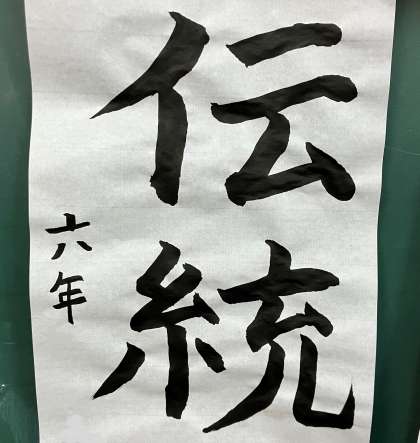 伝統
六年